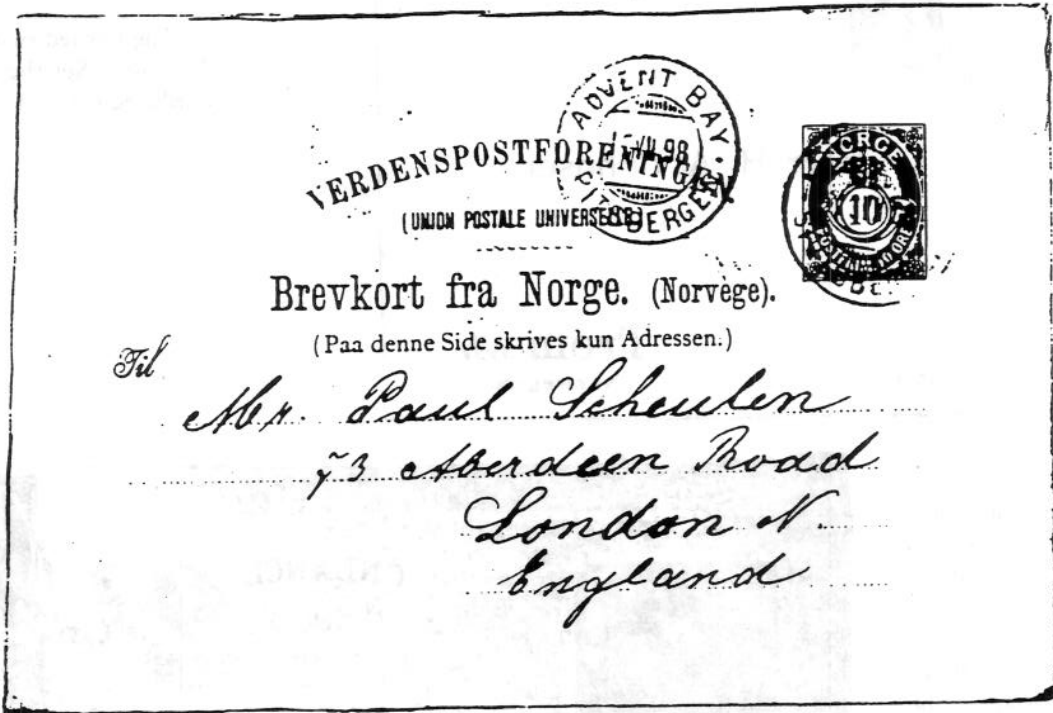 ADVENT BAY
VII 98
SPITSBERGEN
VERDENSPOSTFORENINGEN
(UNION POSTALE UNIVERSELLE)
NORGE
10
Brevkort fra Norge. (Norvège).
(Paa denne Side skrives kun Adressen.)
Til
Mr. Paul Scheulen
73 Aberdeen Road
London N.
England